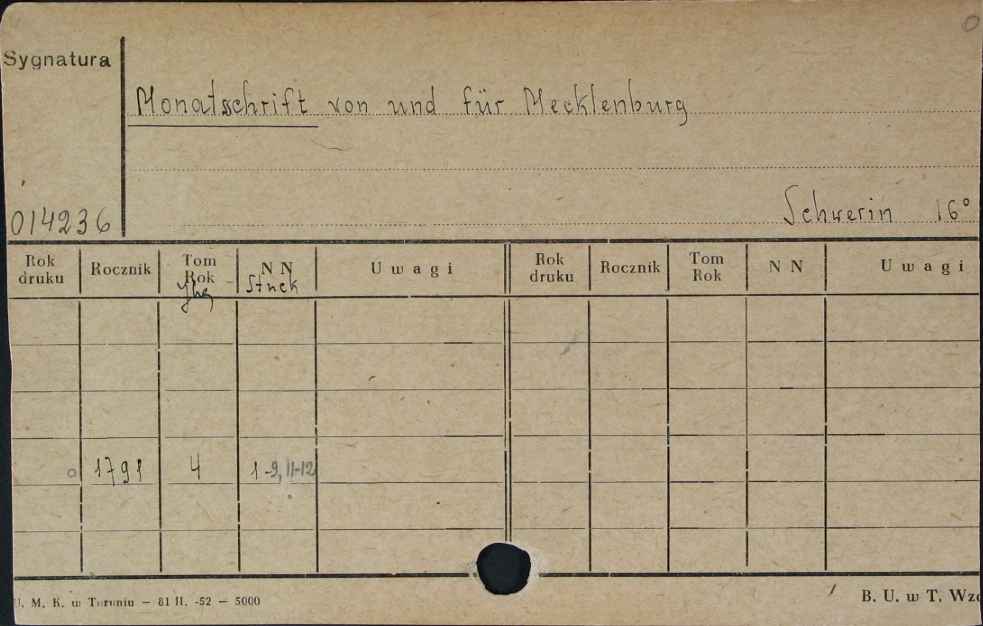 0
Sygnatura
Monatsschrift von und für Mecklenburg
014236
Schwerin 16°
Rok druku Rocznik Tom Rok NN Uwagi Rok druku Rocznik Tom Rok NN Uwagi
Jhg Stuck
o 1791 4 1-9, 11-12
U. M. K. w Toruniu — 81 II. -52 — 5000
B. U. w T. Wzo